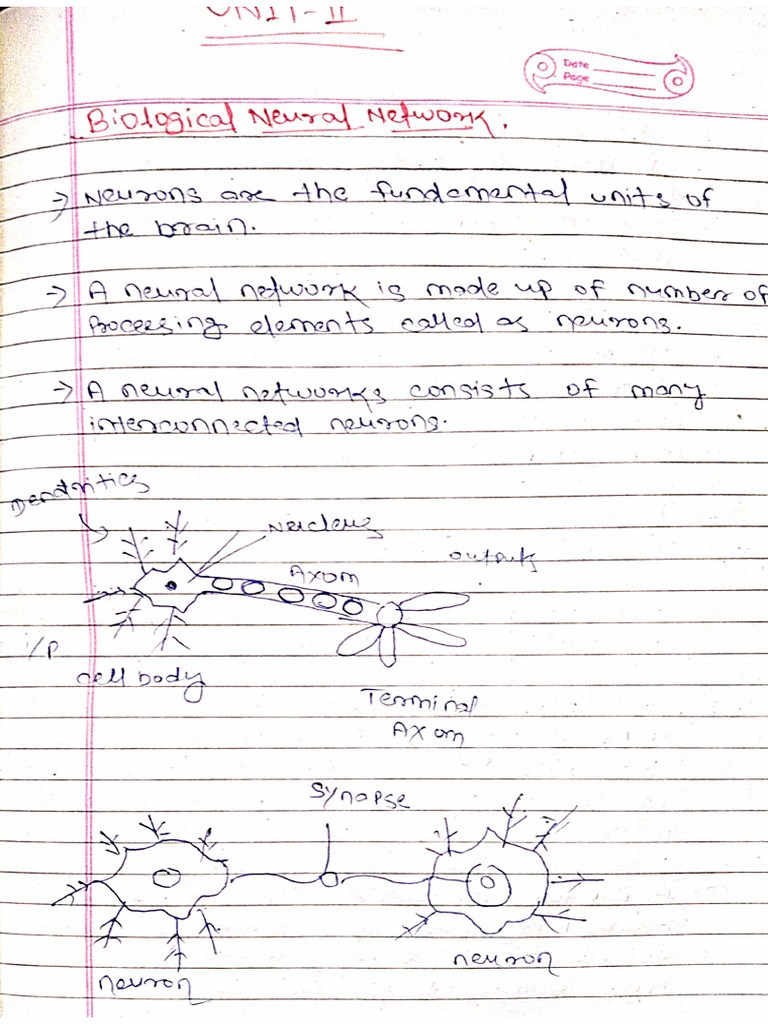 UNIT-II
Date
Page
Biological Neural Network.
→ Neurons are the fundamental units of
the brain.
→ A neural network is made up of number of
Processing elements called as neurons.
→ A neural networks consists of many
interconnected neurons.
Dendritics
Neucleus
Axom
outputs
I/P
cell body
Terminal
Axom
Synapse
neuron
neuron